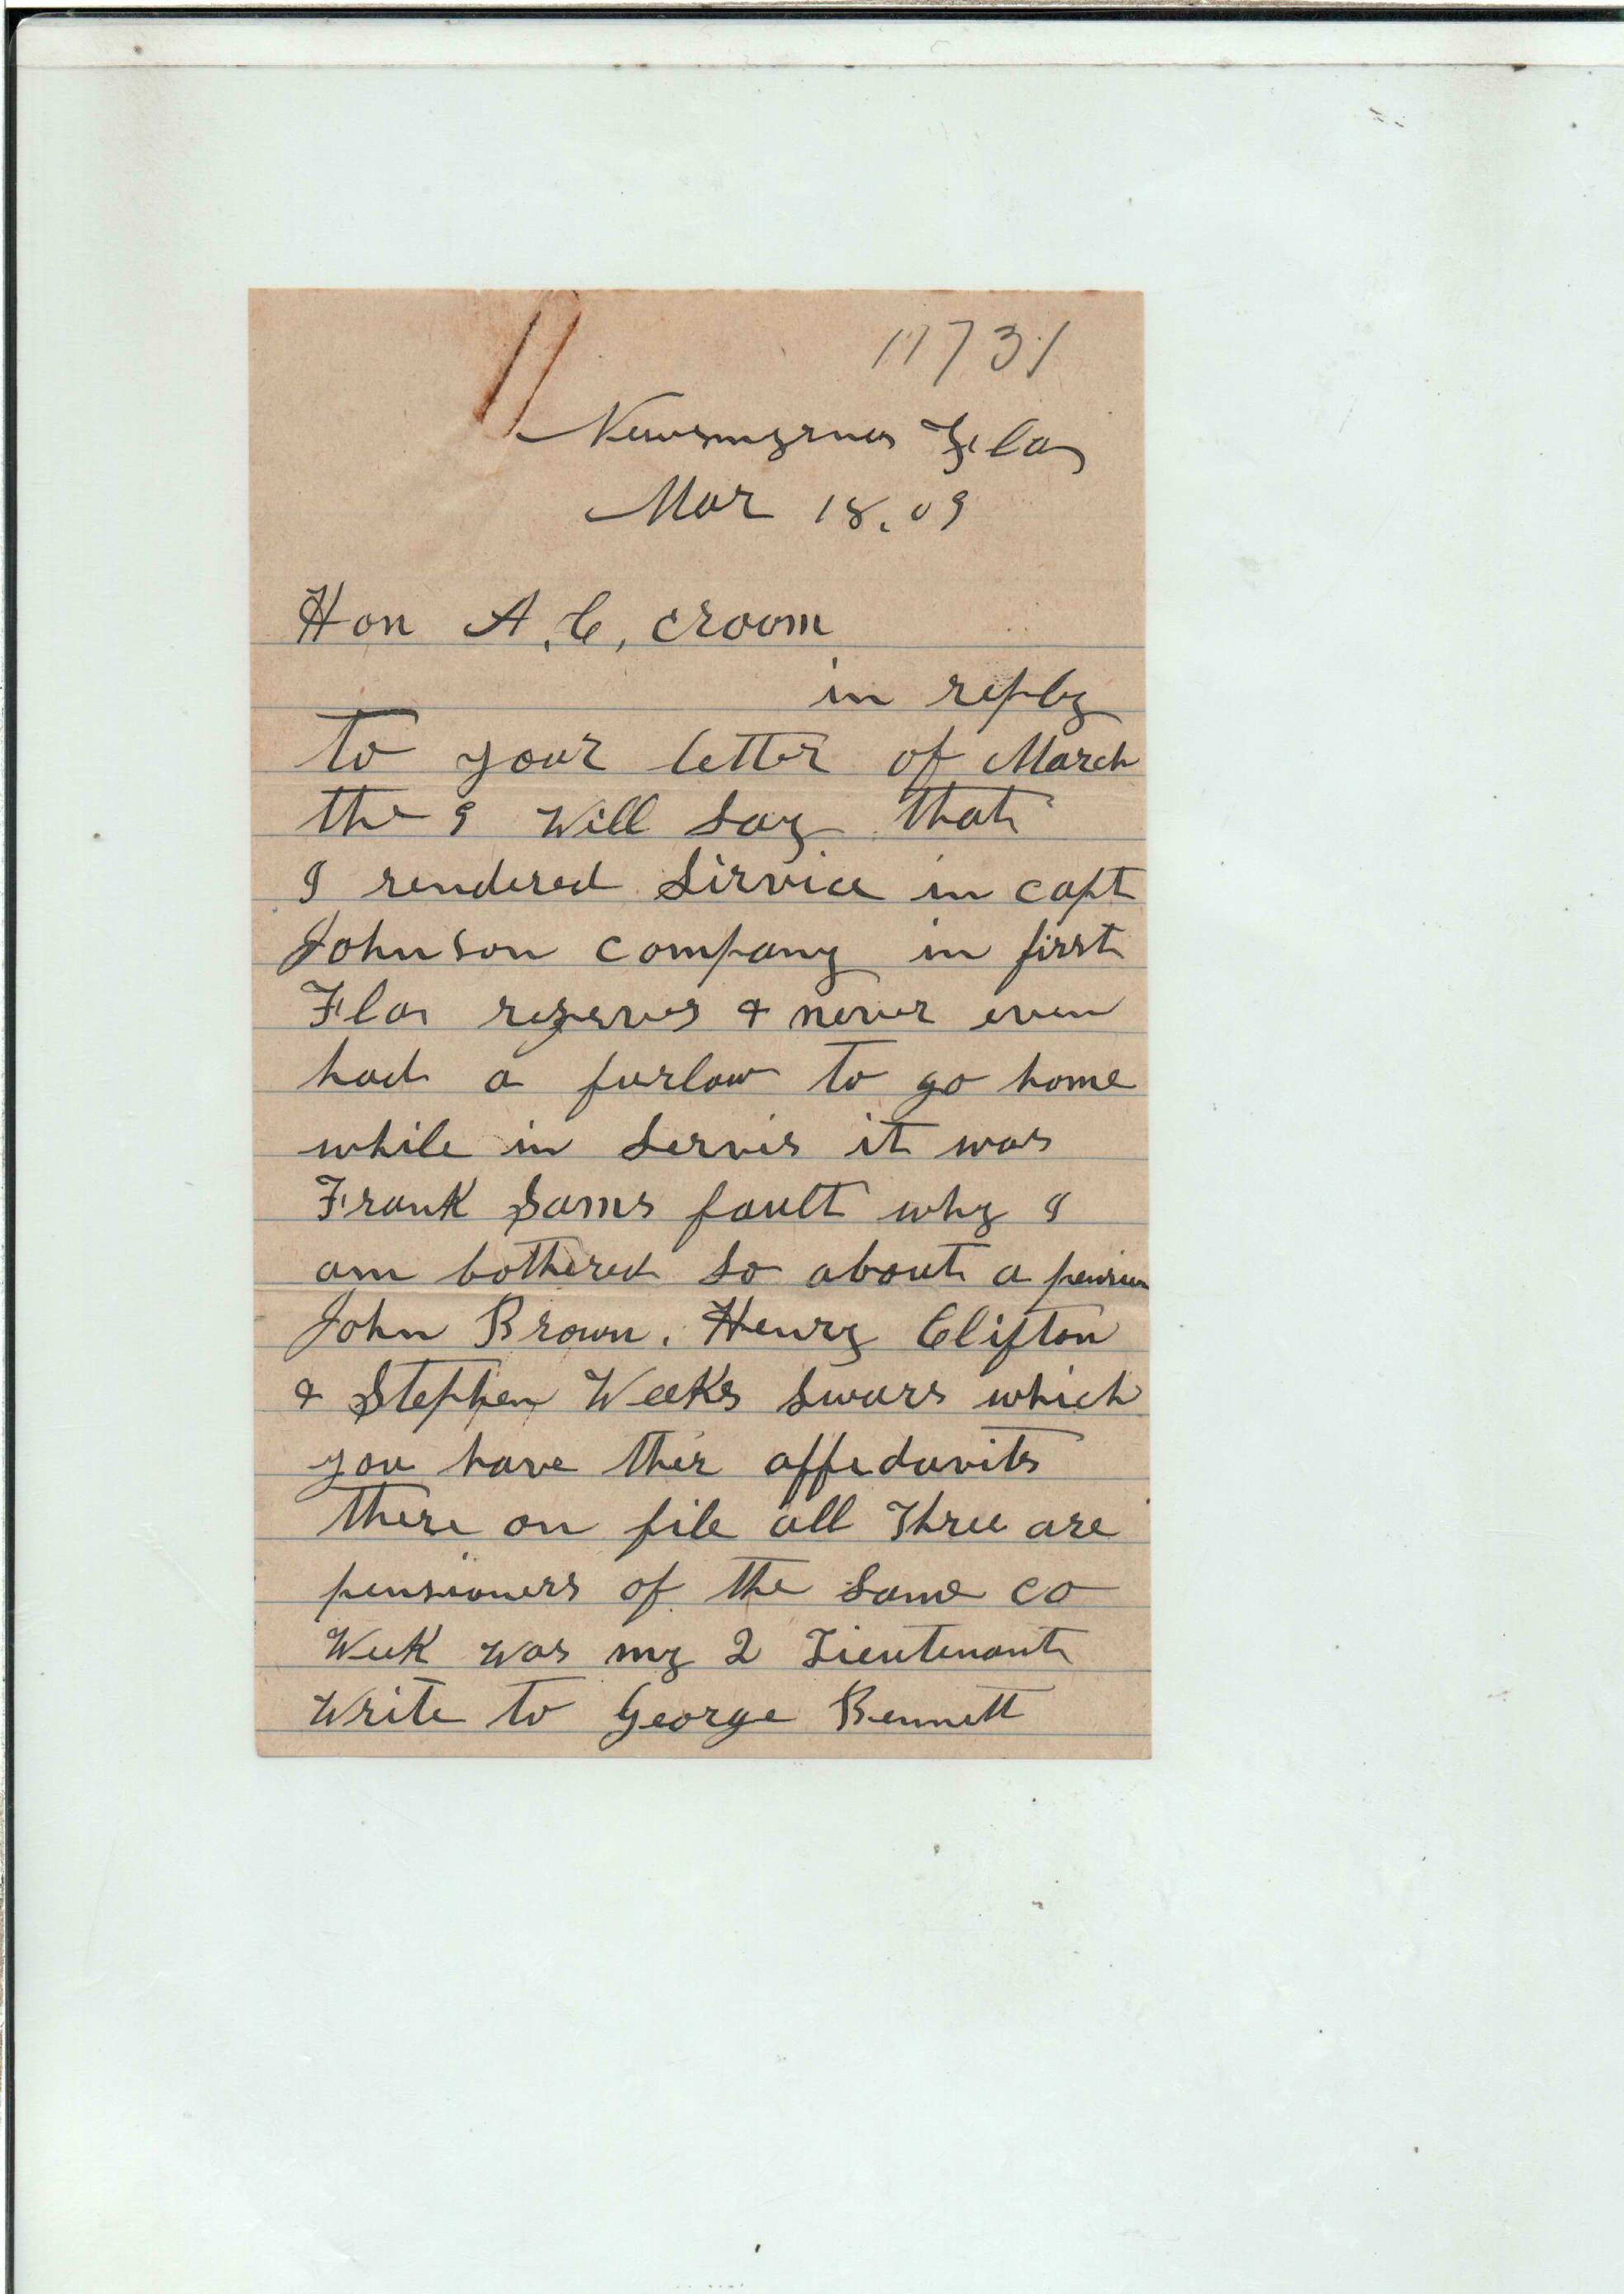 11731
Newsmyrna Fla
Mar 18. 09
Hon A. C, croom
in reply
to your letter of March
the 9 will say that
I rendered Service in capt
Johnson company in first
Fla reserves & never even
had a furlow to go home
while in servis it was
Frank Sams fault why I
am bothered so about a pension
John Brown. Henry Clifton
& Stephen Weeks swars which
you have ther affedavits
there on file all three are
pensioners of the same co
Week was my 2 Lieutenant
Write to George Bennett